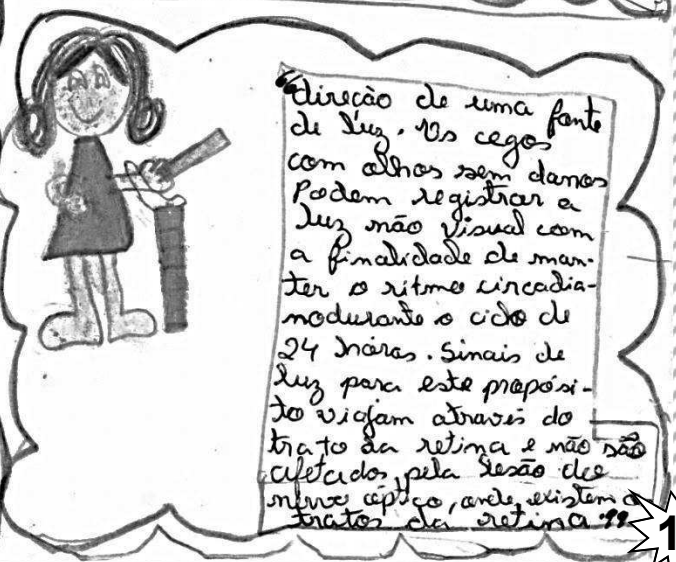 "direção de uma fonte
de luz. Os cegos
com olhos sem danos
Podem registrar a
luz não visual com
a finalidade de man-
ter o ritmo circadia-
nodurante o ciclo de
24 horas. Sinais de
luz para este propósi-
to viajam através do
trato da retina e não são
afetados pela lesão do
nervo óptico, onde, existem o
tratos da retina"
1